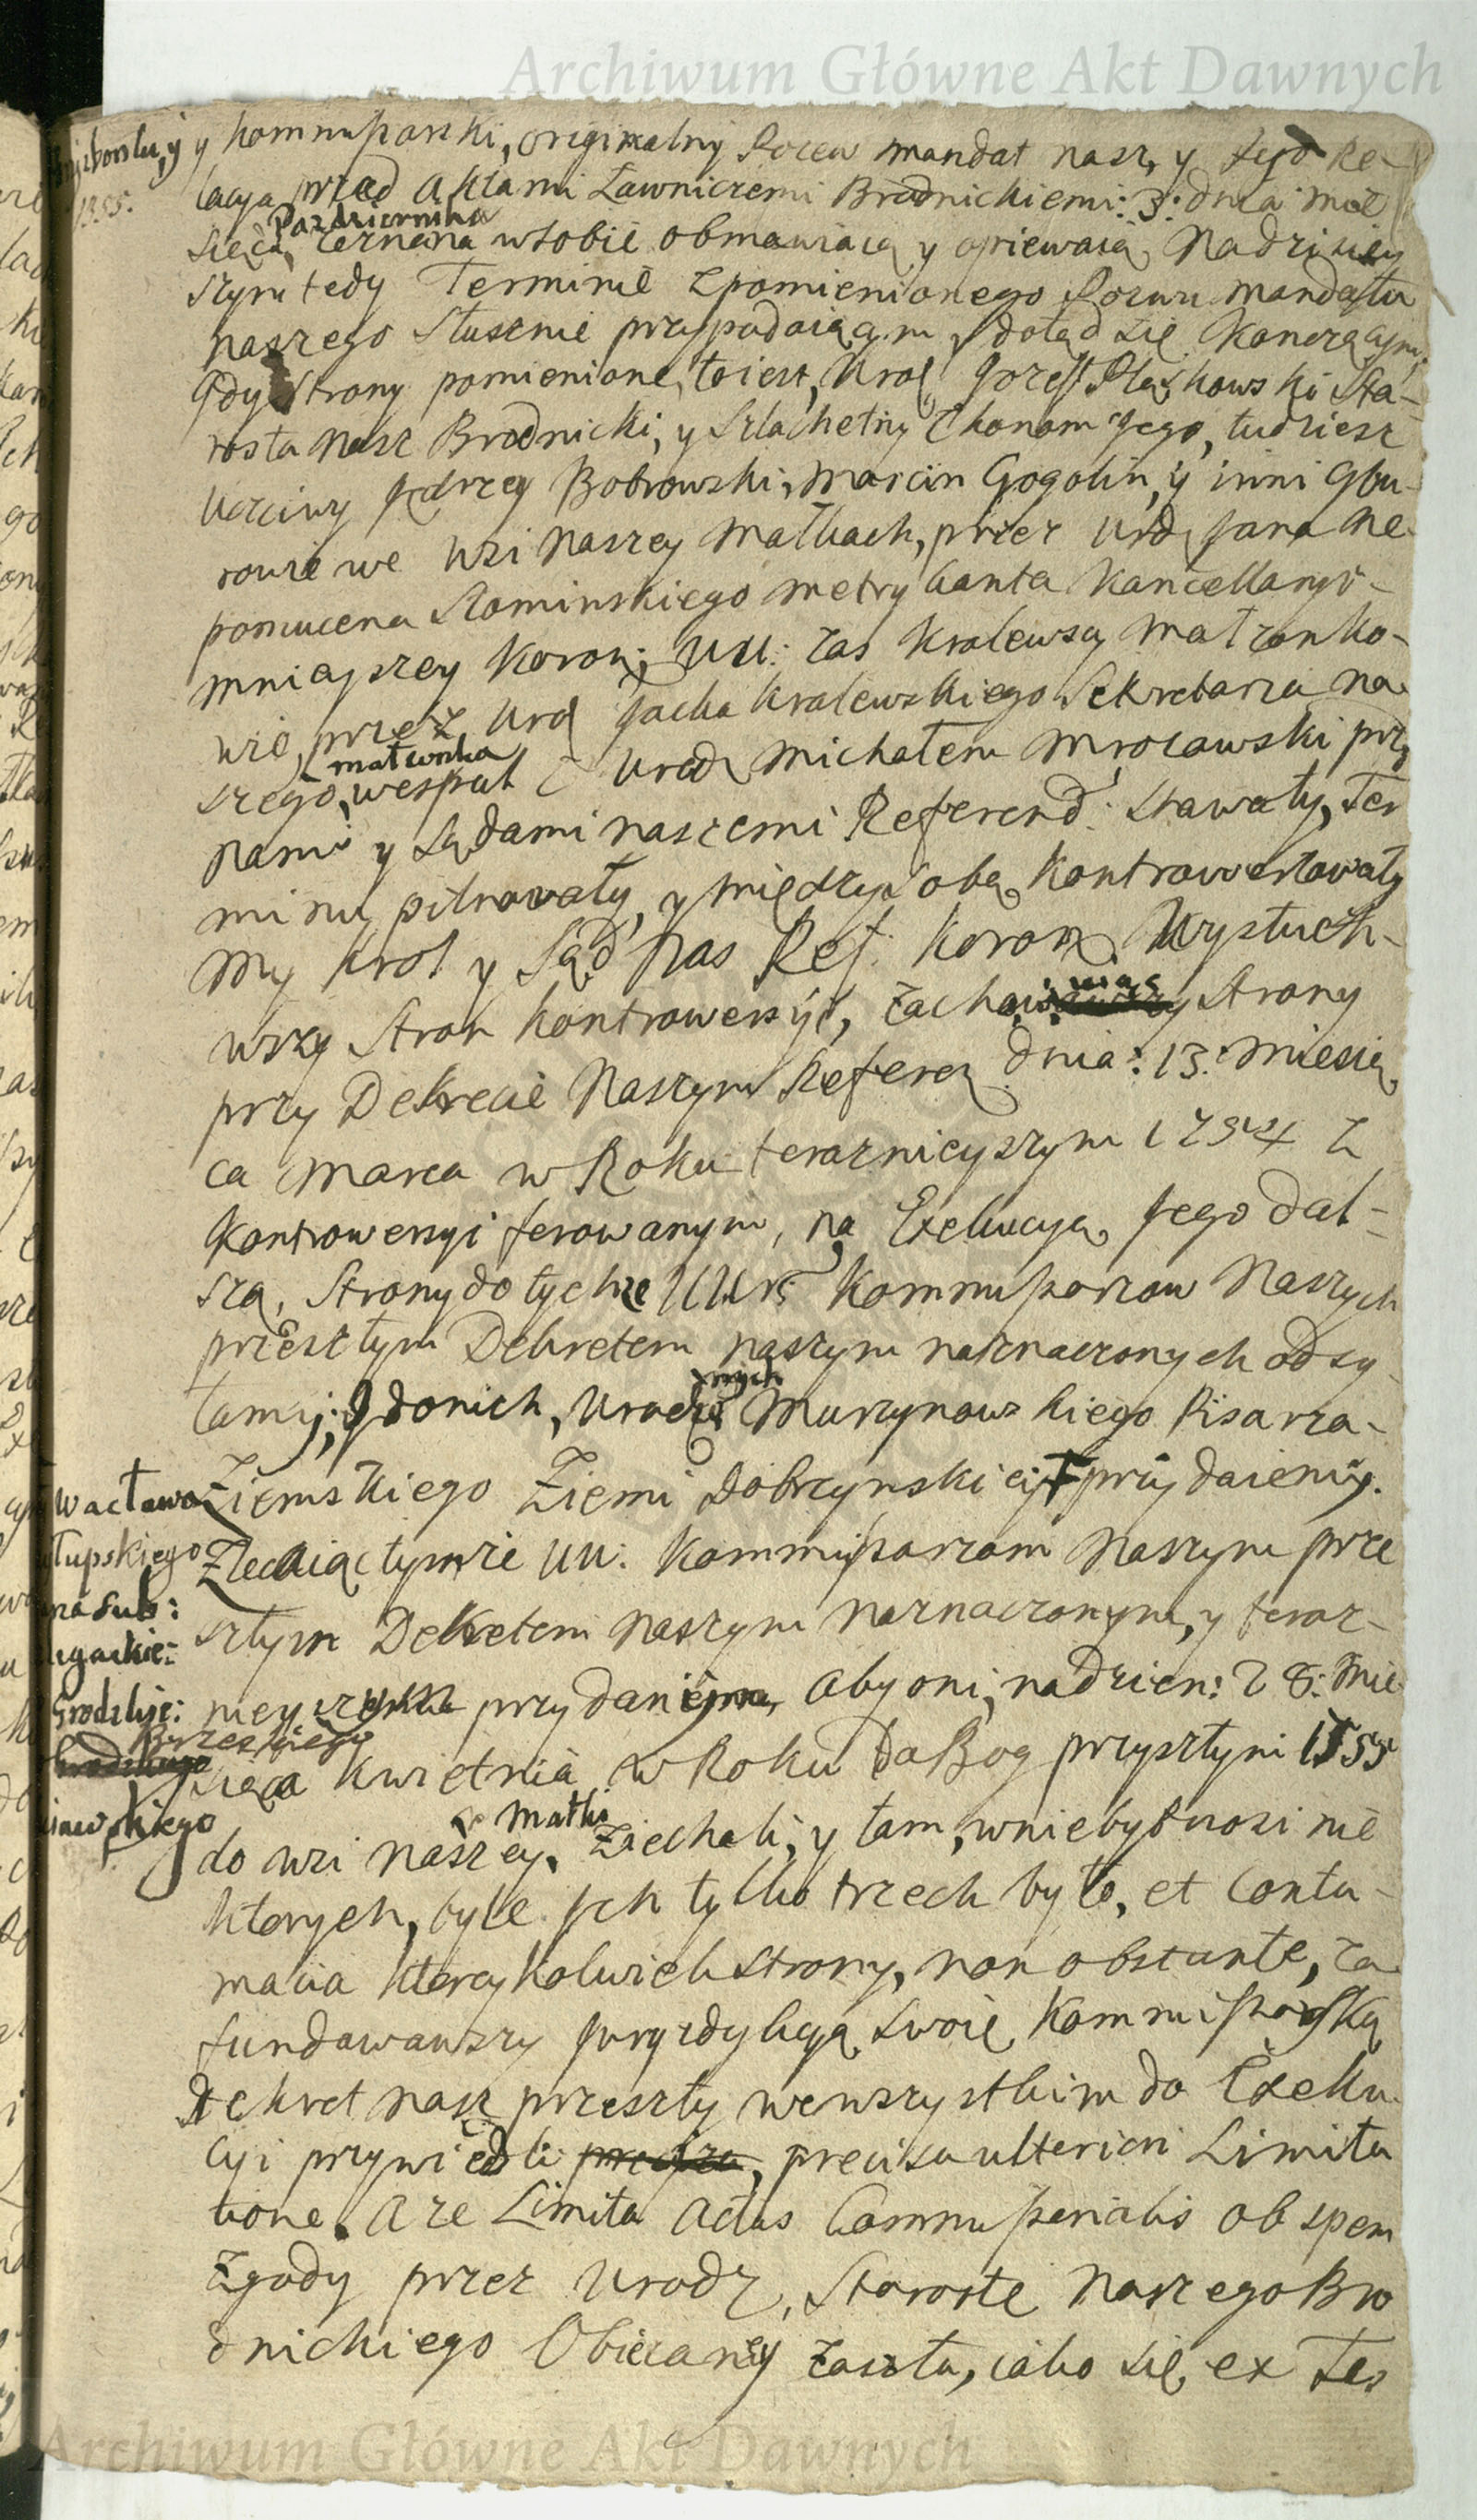 Archiwum Główne Akt Dawnych
y kommissarski, originalny Pozew mandat nasz, y Jego Re-
lacya przed Aktami Ławniczemi Brodnickiemi: 3: dnia mie
Pazdziernika
sięca, zeznana wsobie obmawiaią y opiewaią, Nadzisiey
szym tedy Terminie zpomienionego Pozwu mandatu
naszego słusznie przypadaiącym, y dotąd się Konczącym,
Gdy Strony pomienione, toiest, Urod Jozeff Pląskowski Sta-
rosta nasz Brodnicki, y Szlachetny Ekonom Jego, tudziesz
Uczciwy Jędrzey Bobrowski, Marcin Gogolin, y inni Gbu-
rowie we wsi naszey Małkach, przez Urd, Jana Ne-
pomucena Słominskiego metrykanta Kancellaryi-
mnieyszey Koron; UU: zas Kralewscy Małzonko-
wie, przez Urd Jacka Kralewskiego Sekretarza na
małzonka
szego, wespuł z Urod, Michałem Mrocawski prze
nami y Sądami naszemi Referend: stawały, Ter
minu pilnowały, y między sobą Kontrowertowały
My Krol y Sąd Nas Ref: Koron. Wysłuch-
wszy Stron kontrowersyi, zachowuiąc Strony
przy Dekrecie Naszym Referen dnia: 13: miesią
ca Marca w Roku teraznieyszym 1754 z
Kontrowersyi ferowanym, na Exekucyą, Jego dal-
szą, Strony do tychze UUr: Kommissarzow Naszych
przeszłym Dekretem naszym naznaczonych odsy-
łamy; Do nich, Urodz: Murzynowskiego Pisarza-
nych
Ziemskiego Ziemi Dobrzynskiey przydaiemy.
Wacława
łupskiego
na Sub:
Grodzkie:
Brzeskiego
iawskiego
Zlecaiąc tymze UU: Kommissarzom Naszym prze
szłym Dekretem naszym naznaczonym, y teraz-
nieyszym przydanym, Aby oni, nadzien: 28: Mie
siąca Kwietnia w Roku da Bog przyszłym 1755
do wsi naszey, Małki ziechali, y tam, wniebytnosci nie
ktorych, byle Jch tylko trzech było, et contu-
macia ktorey kolwiek strony, non obstante, za-
fundowawszy Juryzdykcyą swoię Kommissarską
Dekret nasz przeszły wewszystkim do Exeku-
cyi przywiedli, precisa ulteriori Limita
tione. A ze Limita Actus Commissorialis ob spem
zgody przez Urodz, Starostę Naszego Bro
dnickiego Obiecaney zaszła, iako się, ex Tes
Archiwum Główne Akt Dawnych